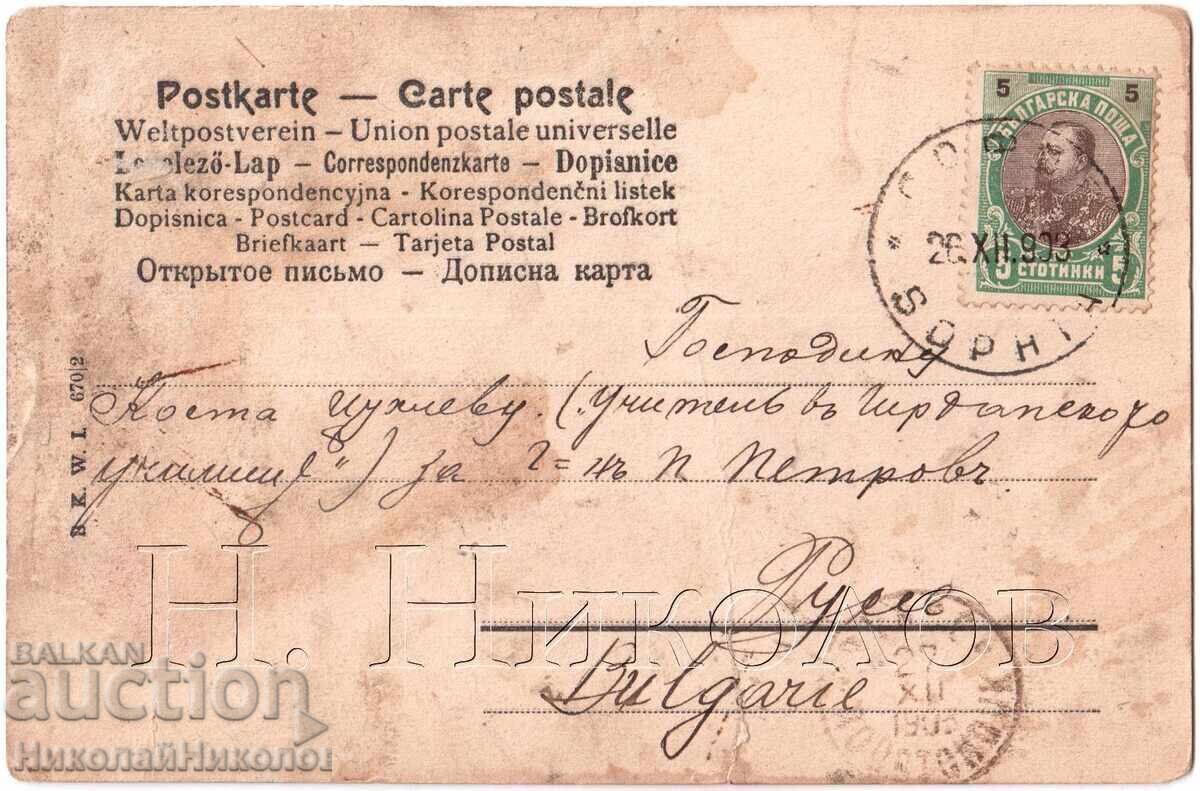 Postkarte — Carte postale
Weltpostverein – Union postale universelle
Levelező-Lap – Correspondenzkarte – Dopisnice
Karta korespondencyjna - Korespondenční listek
Dopisnica - Postcard - Cartolina Postale - Brefkort
Briefkaart — Tarjeta Postal
Открытое письмо — Дописна карта
5 5
БЪЛГАРСКА ПОЩА
5 СТОТИНКИ 5
26.XII.903
Господину
Коста (Учитель въ
училище") за Г=нъ П Петровъ
Русе
Bulgarie
B. K. W. I. 670|2
Н. Николов
BALKAN
auction
НиколайНиколов
XII